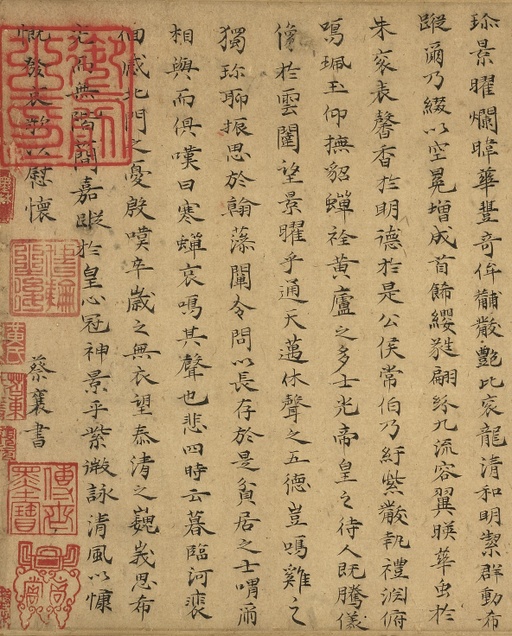 珎景曜爛暐華豐奇侔黼黻艷比衮龍清和明潔群動希
蹤爾乃綴以空冕增成首飾纓蕤翩紛九流容翼暎華虫於
朱衮表馨香於明德於是公侯常伯乃紆紫黻執禮淵俯
鳴珮玉仰撫貂蟬詮黃廬之多士光帝皇之待人既騰儀
像於雲闥望景曜乎通天邁休聲之五德豈鳴雞之
獨珎聊振思於翰藻闡令問以長存於是貧居之士喟爾
相與而俱嘆曰寒蟬哀鳴其聲也悲四時云暮臨河裴
佪感北門之憂殷嘆卒歲之無衣望泰清之巍峩思希
光而無階簡嘉蹤於皇心冠神景乎紫微詠清風以慷
慨發哀歌以慰懷
蔡襄書